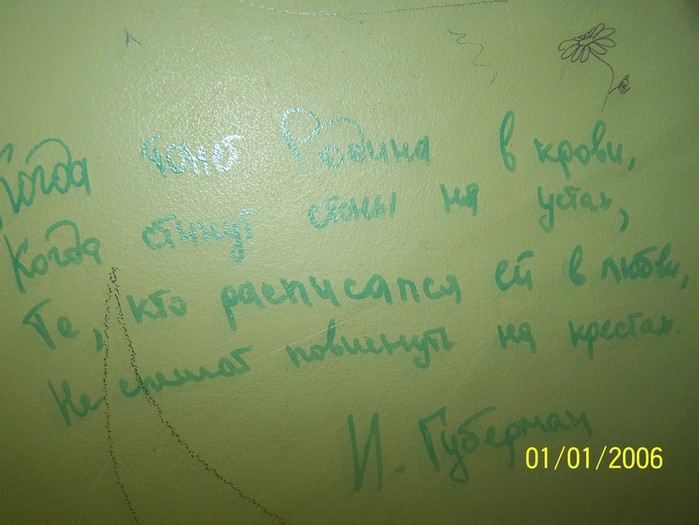 Когда тонет Родина в крови,
Когда стынут стоны на устах,
Те, кто расписался ей в любви,
Не спешат повиснуть на крестах.
И. Губерман
01/01/2006